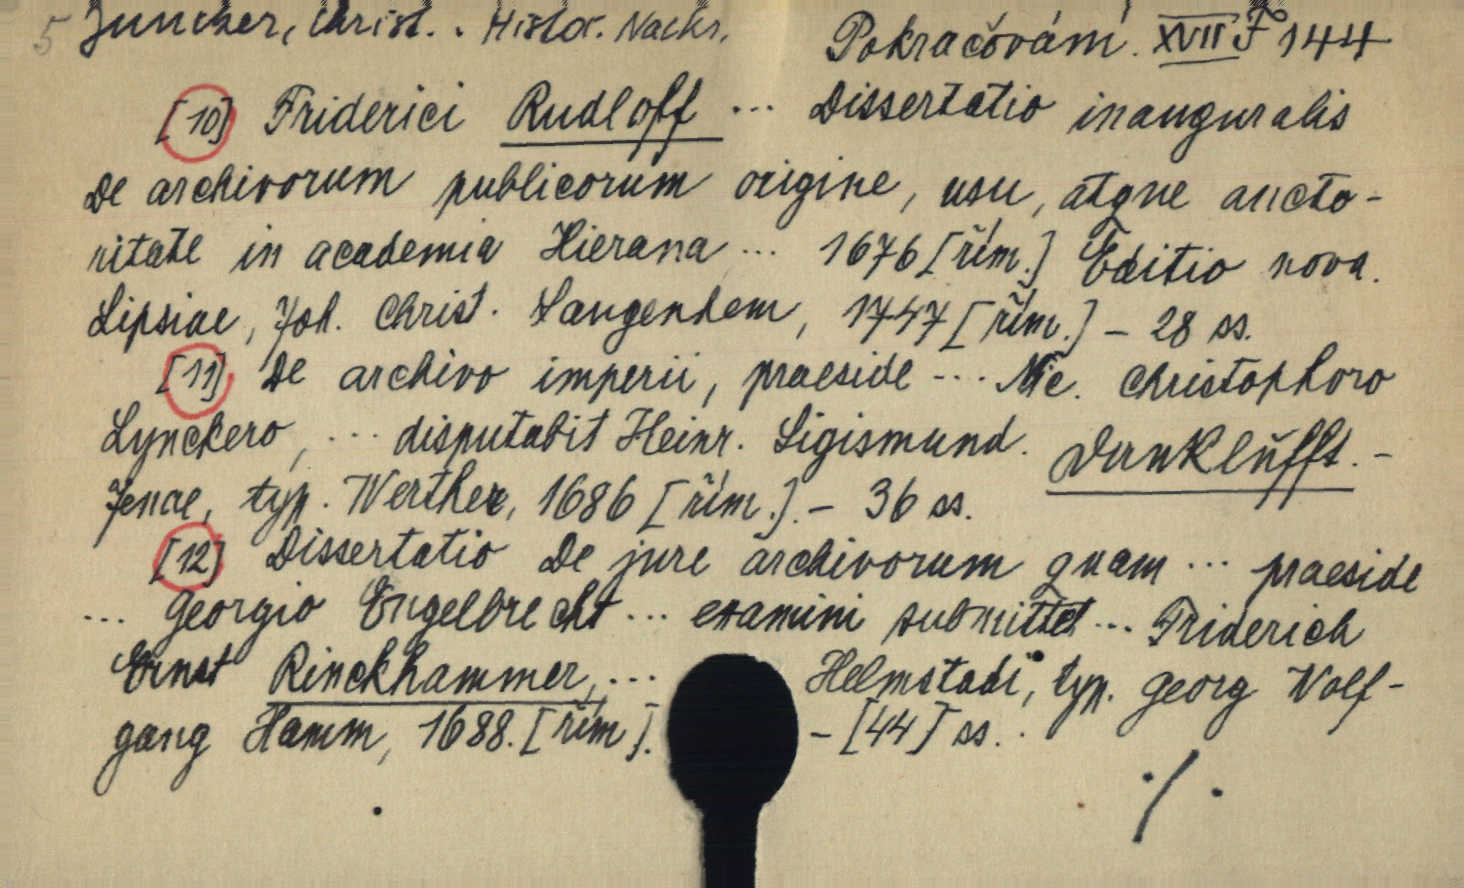 5 Juncker, Christ. . Histor. Nachr. Pokračování. XVII F 144
[10] Friderici Rudloff ... Dissertatio inauguralis
De archivorum publicorum origine, usu, atque aucto-
ritate in academia Hierana ... 1676 [řím.] Editio nova.
Lipsiae, Joh. Christ. Langenhem, 1747 [řím.] – 28 ss.
[11] De archivo imperii, praeside ... Nic. Christophoro
Lynckero, ... disputabit Heinr. Sigismund. Dunklüfft. –
Jenae, typ. Werther, 1686 [řím.]. – 36 ss.
[12] Dissertatio De jure archivorum quam ... praeside
... Georgio Engelbrecht ... examini submittet ... Friderich
Ernst Rinckhammer, ... Helmstadi, typ. Georg Wolf-
gang Hamm, 1688. [řím]. – [44] ss. .
./.